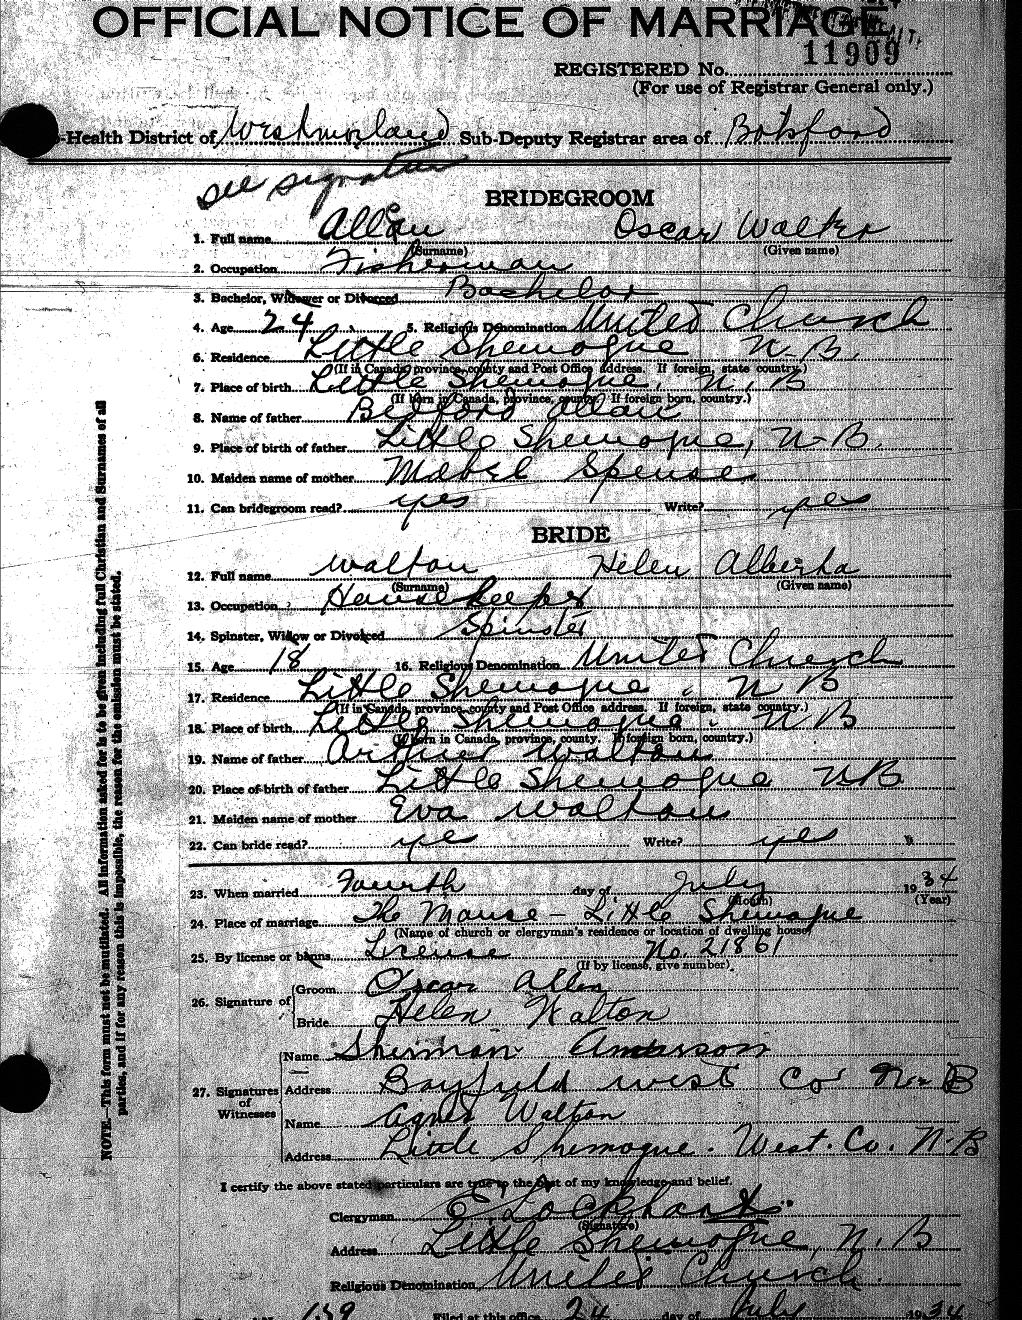 OFFICIAL NOTICE OF MARRIAGE
11909
REGISTERED No.
(For use of Registrar General only.)
-Health District of Westmorland Sub-Deputy Registrar area of Botsford
See signature
BRIDEGROOM
1. Full name Allan e Oscar Walter
(Surname) (Given name)
2. Occupation Fisherman
3. Bachelor, Widower or Divorced Bachelor
4. Age 24 5. Religious Denomination United Church
6. Residence Little Shemogue N.B.
(If in Canada, province, county and Post Office address. If foreign, state country.)
7. Place of birth Little Shemogue, N.B
(If born in Canada, province, county. If foreign born, country.)
8. Name of father Bedford Allan
9. Place of birth of father Little Shemogue, N-B.
10. Maiden name of mother Mabel Spense
11. Can bridegroom read? yes Write? yes
BRIDE
12. Full name Walton Helen Alberta
(Surname) (Given name)
13. Occupation House Keeper
14. Spinster, Widow or Divorced Spinster
15. Age 18 16. Religious Denomination United Church
17. Residence Little Shemogue. N B
(If in Canada, province, county and Post Office address. If foreign, state country.)
18. Place of birth Little Shemogue. N B
(If born in Canada, province, county. If foreign born, country.)
19. Name of father Arthur Walton
20. Place of birth of father Little Shemogue NB
21. Maiden name of mother Eva Walton
22. Can bride read? yes Write? yes
23. When married Fourth day of July 1934
(Month) (Year)
24. Place of marriage The Manse - Little Shemogue
(Name of church or clergyman's residence or location of dwelling house)
25. By license or banns License No. 21861
(If by license, give number)
26. Signature of Groom Oscar Allen
Bride Helen Walton
27. Signatures of Witnesses Name Sherman Amberson
Address Bayfield West Co N-B
Name Agnes Walton
Address Little Shemogue. West. Co. N-B
I certify the above stated particulars are true to the best of my knowledge and belief.
Clergyman E Lockhart
(Signature)
Address Little Shemogue, N.B
Religious Denomination United Church.
159 Filed at this office 24 day of July 1934
NOTE.—This form must not be mutilated. All information asked for is to be given including full Christian and Surnames of all
parties, and if for any reason this is impossible, the reason for the omission must be stated.